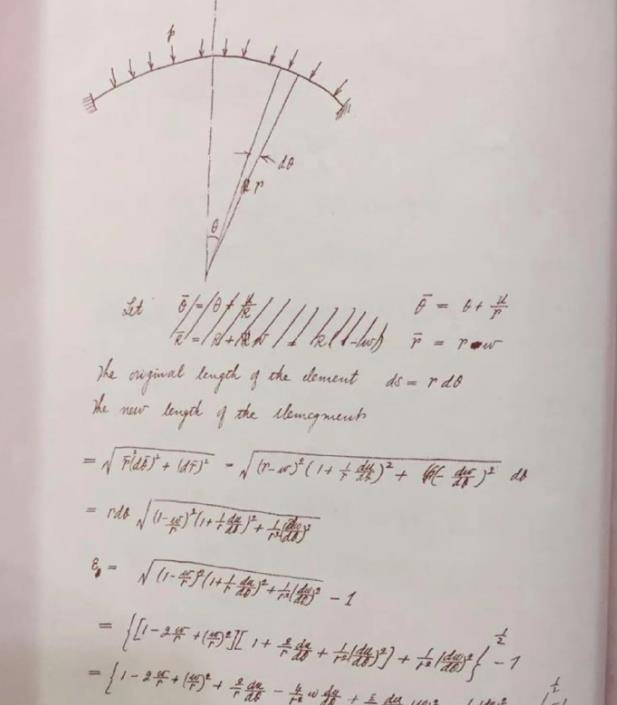 p
dθ
r
θ
Let θ̄ = θ + u/r
r̄ = r - w
The original length of the element ds = r dθ
The new length of the
= √( r̄²(dθ̄)² + (dr̄)² ) = √( (r-w)² (1 + 1/r du/dθ)² + (- dw/dθ)² ) dθ
= r dθ √( (1 - w/r)² (1 + 1/r du/dθ)² + 1/r² (dw/dθ)² )
= √( (1 - w/r)² (1 + 1/r du/dθ)² + 1/r² (dw/dθ)² ) - 1
= { [1 - 2 w/r + (w/r)²][ 1 + 2/r du/dθ + 1/r² (du/dθ)² ] + 1/r² (dw/dθ)² }^½ - 1
= { 1 - 2 w/r + (w/r)² + 2/r du/dθ - 4/r² w du/dθ +